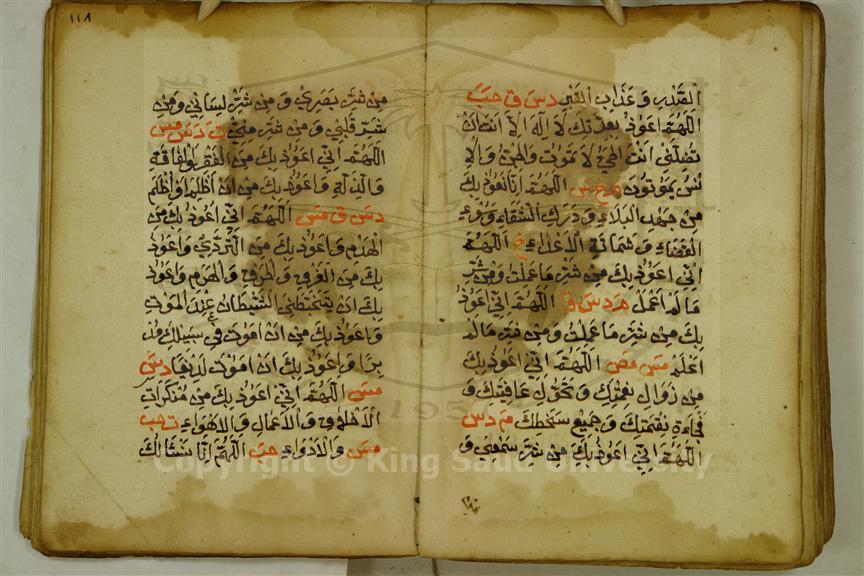 القبر وعذاب القبر دس ق حب
اللهم اعوذ بعزتك لا اله الا انت ان
تضلني انت الحي لا تموت والجن والا
نس يموتون م خ س اللهم انا نعوذ بك
من جهد البلاء ودرك الشقاء وسوء
القضاء وشماتة الاعداء خ اللهم
اني اعوذ بك من شر ما عملت ومن شر
ما لم اعمل م د س ق اللهم اني اعوذ
بك من شر ما عملت ومن شر ما لم
اعلم مس مص اللهم اني اعوذ بك
من زوال نعمتك وتحول عافيتك و
فجاءة نقمتك وجميع سخطك م د س
اللهم اني اعوذ بك من شر سمعي و
١١٨
من شر بصري و من شر لساني ومن
شر قلبي ومن شر منيي ت د س مس
اللهم اني اعوذ بك من الفقر والفاقة
والذلة واعوذ بك من ان اظلم او اظلم
دس ق مس اللهم اني اعوذ بك من
الهدم واعوذ بك من التردي واعوذ
بك من الغرق والحرق والهرم واعوذ
بك ان يتخبطني الشيطان عند الموت
واعوذ بك من ان اموت في سبيلك مد
برا واعوذ بك ان اموت لديغا دس
مس اللهم اني اعوذ بك من منكرات
الاخلاق والاعمال والاهواء ت حب
مس والادواء حب اللهم انا نسئالك
Copyright © King Saud University
195